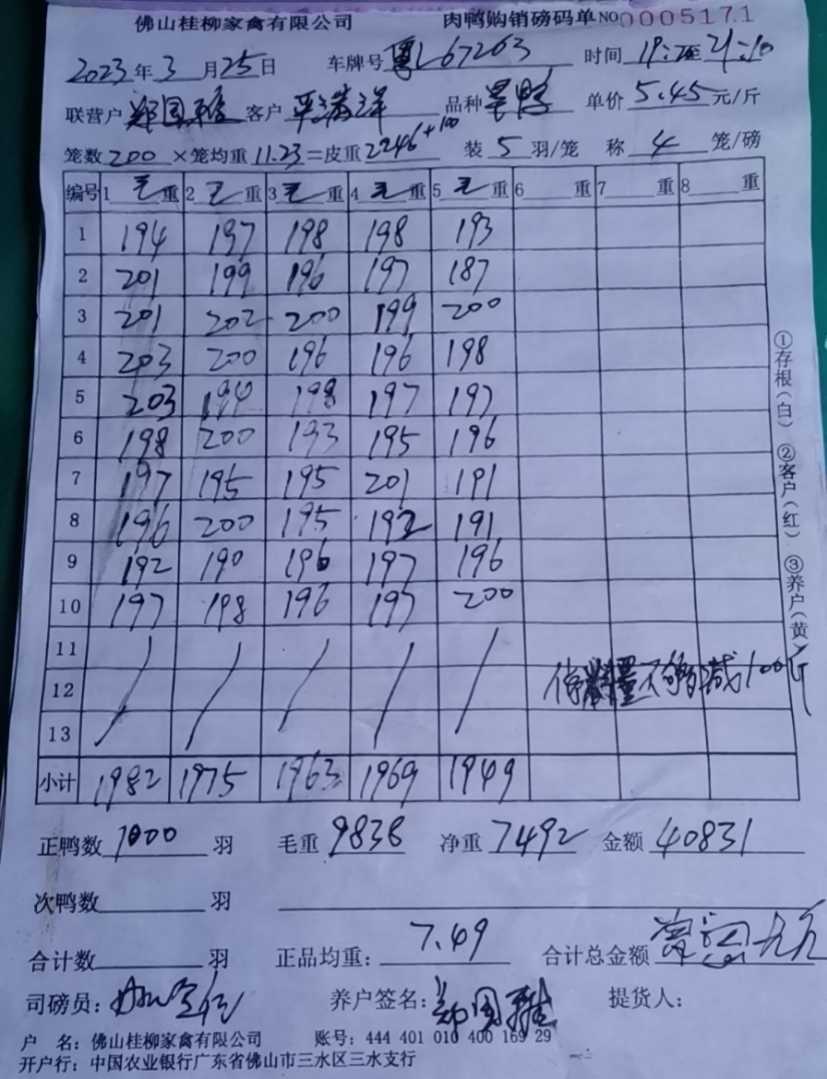 佛山桂柳家禽有限公司 肉鸭购销磅码单 NO0005171
2023年3月25日 车牌号 粤L67263 时间 19: 至21:10
联营户 郑国雅 客户 品种 单价 5.45 元/斤
笼数 200 ×笼均重 11.23 =皮重 2246+100 装 5 羽/笼 称 4 笼/磅
编号 1 毛 重 2 毛 重 3 毛 重 4 毛 重 5 毛 重 6 重 7 重 8 重
1 194 197 198 198 193
2 201 199 196 197 187
3 201 202 200 199 200
4 203 200 196 196 198
5 203 194 198 197 197
6 198 200 193 195 196
7 197 195 195 201 191
8 196 200 195 192 191
9 192 190 196 197 196
10 197 198 196 197 200
11
12 不够减100斤
13
小计 1982 1975 1963 1969 1949
正鸭数 1000 羽 毛重 9838 净重 7492 金额 40831
次鸭数 羽
合计数 羽 正品均重: 7.49 合计总金额
司磅员: 养户签名: 郑国雅 提货人:
户 名: 佛山桂柳家禽有限公司 账号: 444 401 010 400 169 29
开户行: 中国农业银行广东省佛山市三水区三水支行
①存根(白) ②客户(红) ③养户(黄)